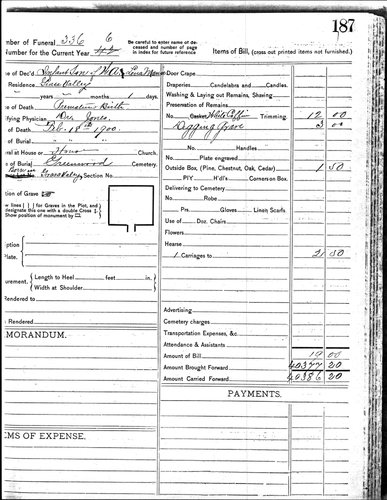 187
mber of Funeral 336
Number for the Current Year
6
Be careful to enter name of deceased and number of page in index for future reference.
Items of Bill, (cross out printed items not furnished.)
e of Dec'd Infant Son of
Residence Grass Valley
years months 1 days.
e of Death Premature Birth
ifying Physician Drs Jones
of Death Feb. 18th 1900.
of Burial " " "
al at House or Home Church.
of Burial Greenwood Cemetery.
Grass Valley Section No.
osition of Grave
w lines ( ) for Graves in the Plot, and
designate this one with a double Cross
Show position of monument
iption
Plate.
urement. Length to Heel feet in.
Width at Shoulder
Rendered to
Rendered
MORANDUM.
EMS OF EXPENSE.
Door Crape
Draperies Candelabras and Candles.
Washing & Laying out Remains, Shaving.
Preservation of Remains
No. Casket White Coffin Trimming. 12 00
Digging Grave 3 00
No. Handles
Plate engraved
Outside Box, (Pine, Chestnut, Oak, Cedar) 1 50
P.I.Y H'd's Cornerson Box.
Delivering to Cemetery
No. Robe
Prs. Gloves Linen Scarfs
Use of Doz. Chairs
Flowers
Hearse
1 Carriages to 2 50
Advertising
Cemetery charges
Transportation Expenses, &c.
Attendance & Assistants
Amount of Bill 19 00
Amount Brought Forward 40377 20
Amount Carried Forward 40386 20
PAYMENTS.